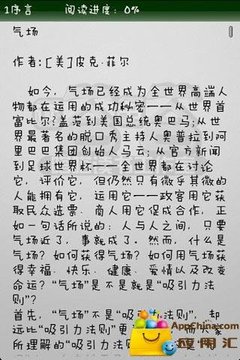 1序言 阅读进度：0%
气场
作者：[美]皮克·菲尔
如今，气场已经成为全世界高端人
物都在运用的成功秘密——从世界首
富比尔?盖茨到美国总统奥巴马；从世
界最著名的脱口秀主持人奥普拉到阿
里巴巴集团创始人马云；从官方新闻
到足球世界杯——全世界都在讨论
它，评价它，但仍然只有微乎其微的
人能拥有它，运用它——政客用它获
取民众选票，商人用它促成合作，正
如一句话所说的：人与人之间，只要
气场近了，事就成了。然而，什么是
气场？如何获得气场？如何用气场获
得幸福、快乐、健康、爱情以及改变
命运？“气场”是不是就是“吸引力法
则”？
首先，“气场”不是“吸引力法则”，却
远比“吸引力法则”更
所理解的“吸引力法则
AppChina.com
应用汇